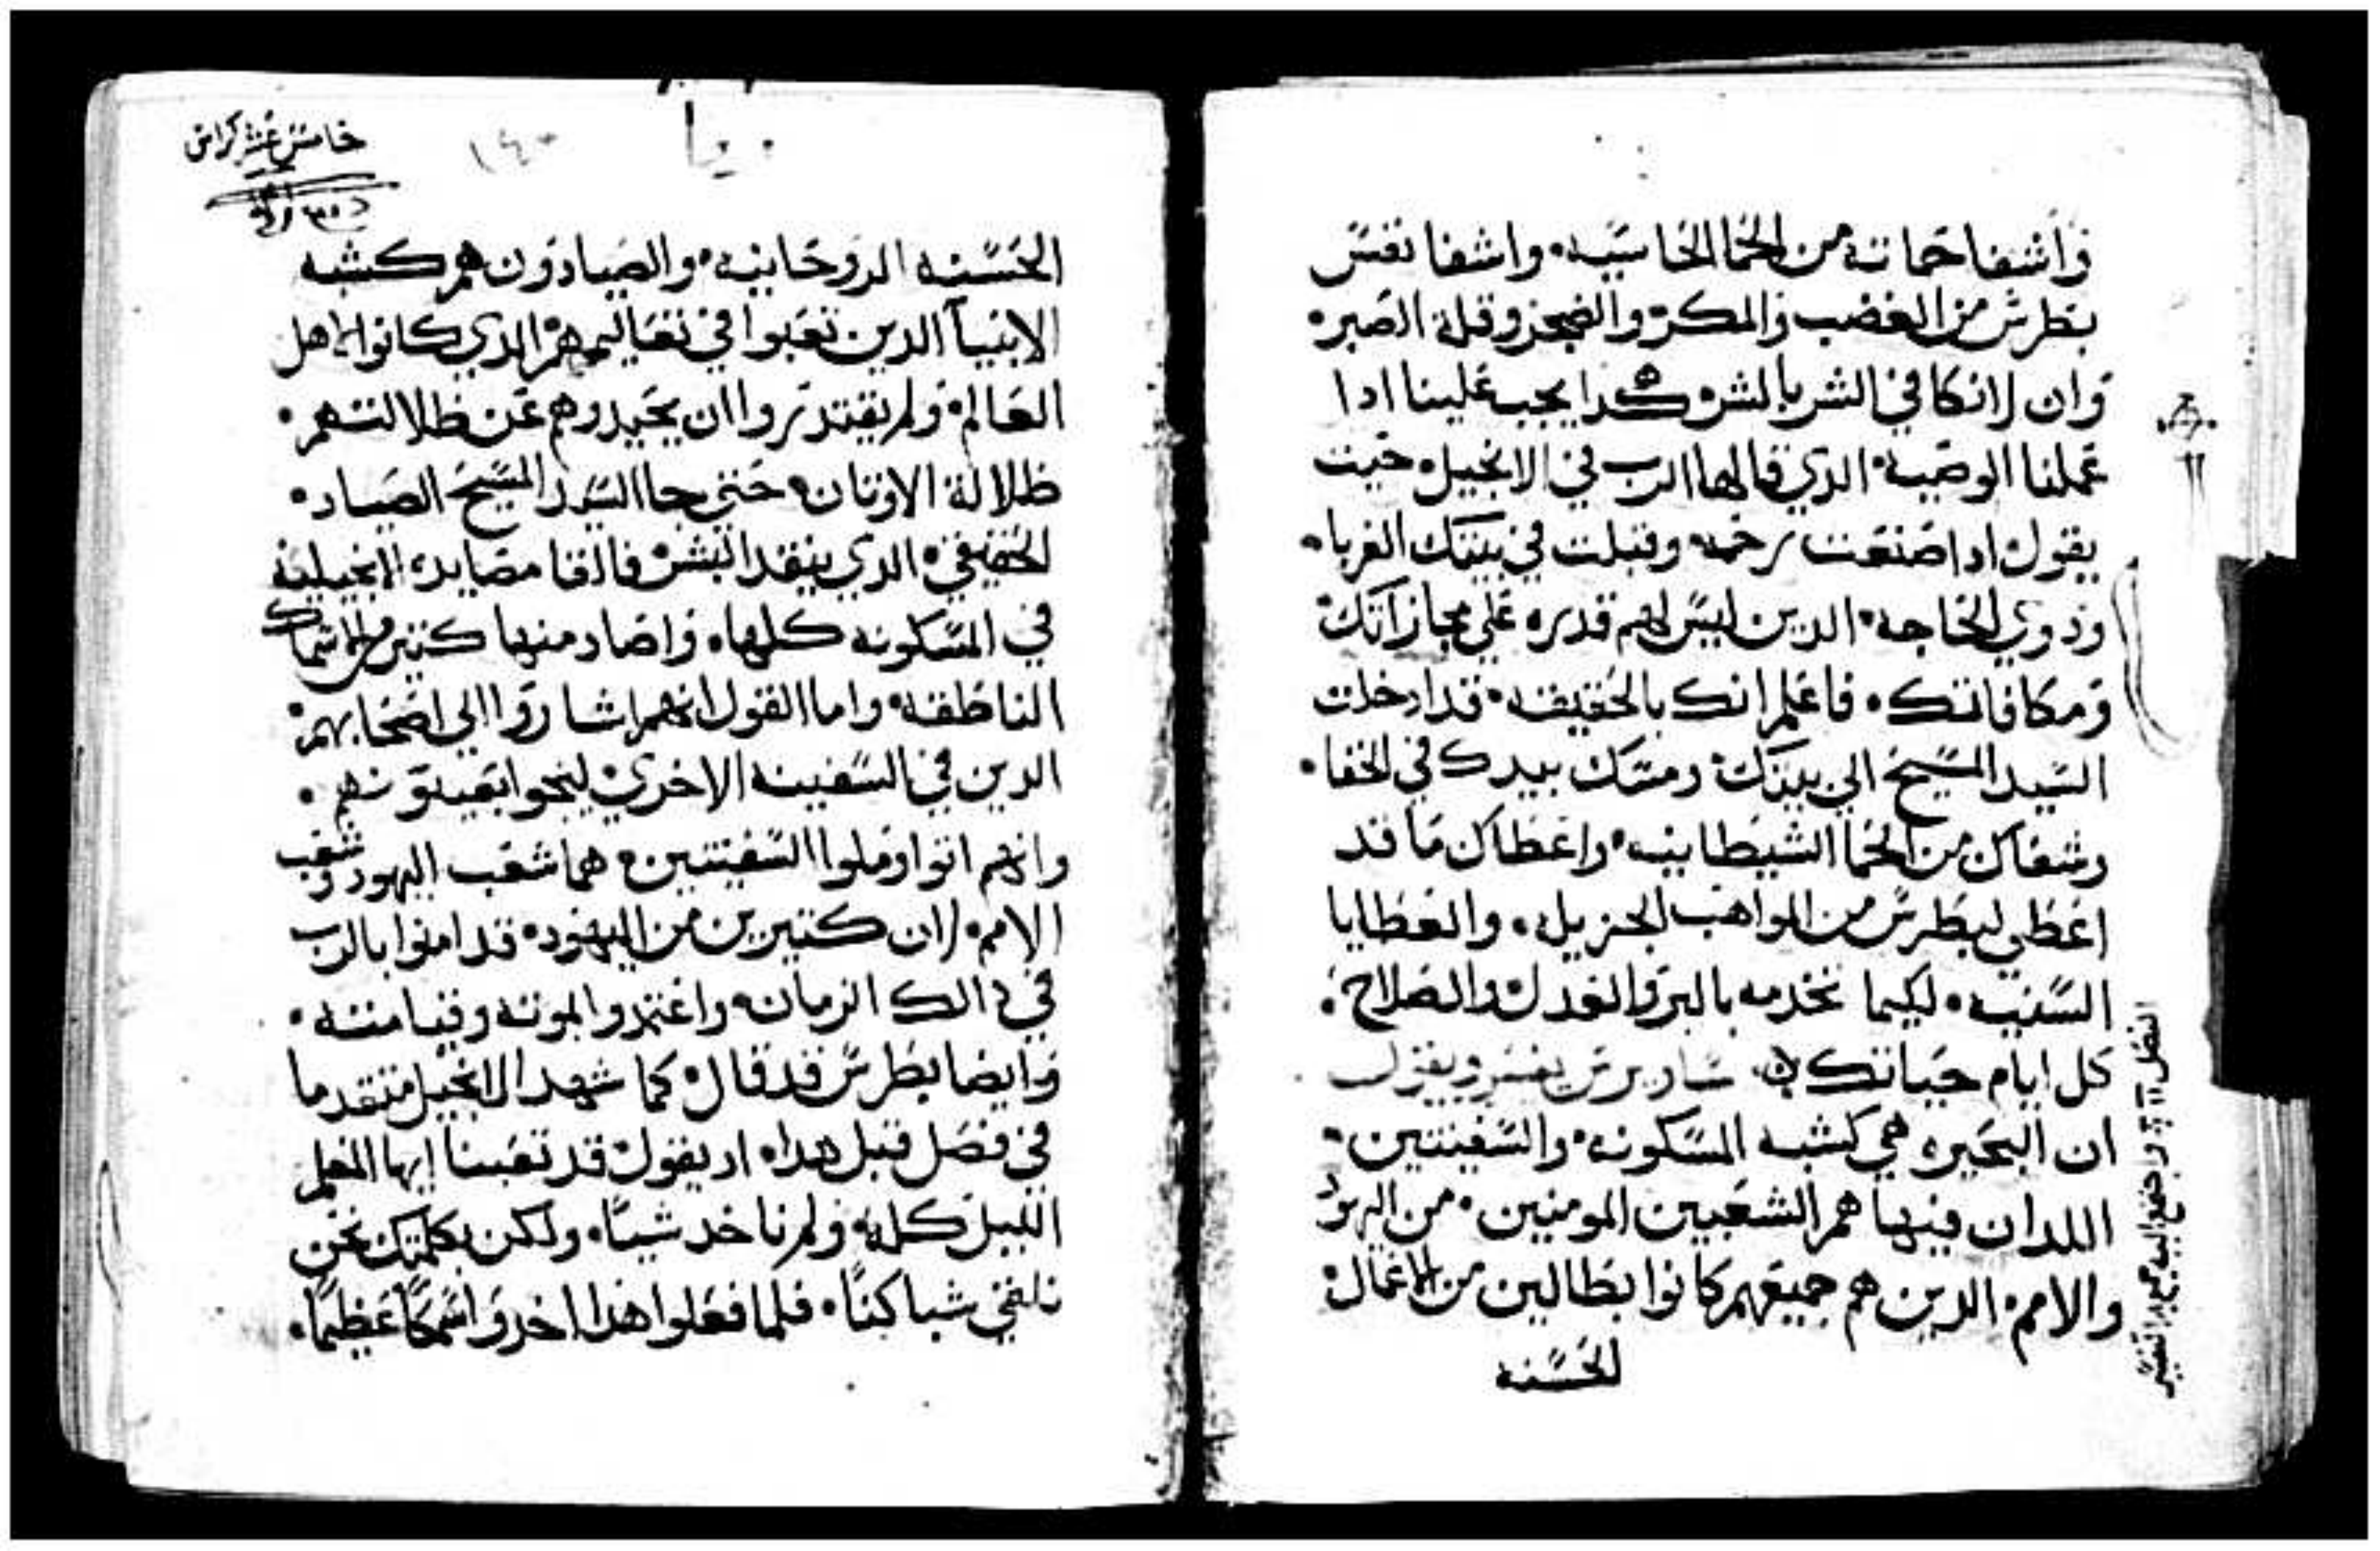 واشفا حماته من الحما الحاسيه• واشفا نفس
بطرس من الغضب والمكر• والضجر وقلة الصبر•
وان لا نكافي الشر بالشر• هكدا يجب علينا ادا
عملنا الوصية• الدي قالها الرب في الانجيل• حيت
يقول ادا صنعت رحمه• وقبلت في بيتك الغربا•
ودوي الحاجه• الدين ليس لهم قدره علي مجازاتك•
ومكافاتك• فاعلم انك بالحقيقه• قد ادخلت
السيد المسيح الي بيتك• ومسك بيدك في الخفا•
وشفاك من الحما الشيطانيه• واعطاك ما قد
اعطي لبطرس من المواهب الجزيله• والعطايا
السنيه• لكيما تخدمه بالبر والعدل والصلاح•
كل ايام حياتك• ساويرس يفسر ويقول
ان البحيره هي كشبه المسكونه• والسفينتين•
اللدان فيها هم الشعبين المومنين• من اليهود
والامم• الدين هم جميعهم كانوا بطالين من الاعمال•
الحسنه
الفصل
خامس عشر كراس
١٤٠
الحسنه الروحانيه• والصيادون هم كشبه
الانبيآ الدين تعبوا في تعاليمهم• الدي كانوا لاهل
العالم• ولم يقتدروا ان يحيدوهم عن ظلالتهم•
ظلالة الاوتان• حتي جا السيد المسيح الصياد•
الحقيقي• الدي ينقد البشر• فالقا مصايده الانجيليه
في المسكونه كلها• واصاد منها كتير من الاسماك
الناطقه• واما القول انهم اشاروا الي اصحابهم•
الدين في السفينه الاخري• ليجوا يعينونهم•
وانهم اتوا وملوا السفينتين• هما شعب اليهود وشعب
الامم• لان كتيرين من اليهود• قد امنوا بالرب
في دالك الزمان• واعتمدوا لموته وقيامته•
وايضا بطرس قد قال• كما شهد الانجيل متقدما
في فصل قبل هدا• اد يقول• قد تعبنا ايها المعلم
الليل كله• ولم ناخد شيئا• ولكن بكلمتك نحن
نلقي شباكنا• فلما فعلوا هدا اخدوا سمكا عظيما•